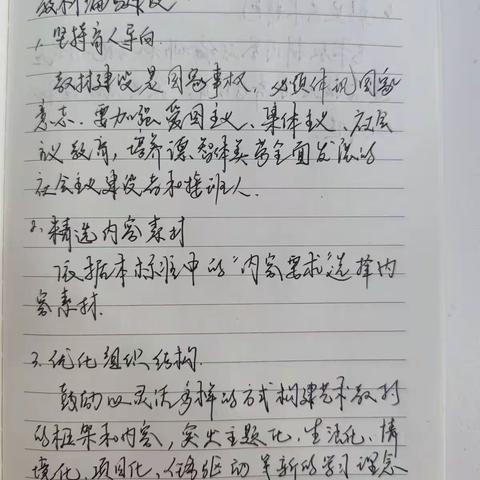 教材编写建议
1. 坚持育人导向
教材建设是国家事权，必须体现国家
意志. 要加强爱国主义、集体主义、社会
主义教育，培养德智体美劳全面发展的
社会主义建设者和接班人.
2. 精选内容素材
依据本标准中的“内容要求”选择内
容素材.
3. 优化组织结构.
鼓励以灵活多样的方式构建艺术教材
的框架和内容，突出主题化、生活化、情
境化、项目化、任务驱动等新的学习理念